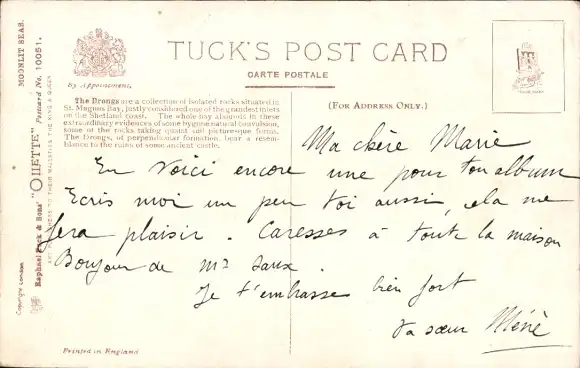 MOONLIT SEAS.
Raphael Tuck & Sons' "OILETTE" Postcard No. 10051.
ART PUBLISHERS TO THEIR MAJESTIES THE KING & QUEEN
Copyright London
by Appointment.
TUCK'S POST CARD
CARTE POSTALE
(FOR ADDRESS ONLY.)
The Drongs are a collection of isolated rocks situated in
St. Magnus Bay, justly considered one of the grandest inlets
on the Shetland coast. The whole bay abounds in these
extraordinary evidences of some bygone natural convulsion,
some of the rocks taking quaint and picturesque forms.
The Drongs, of perpendicular formation, bear a resem-
blance to the ruins of some ancient castle.
Ma chère Marie
En voici encore une pour ton album
Ecris moi un peu toi aussi, cela me
fera plaisir. Caresses à toute la maison
Bonjour de Mr
Je t'embrasse bien fort
Ta sœur
Printed in England